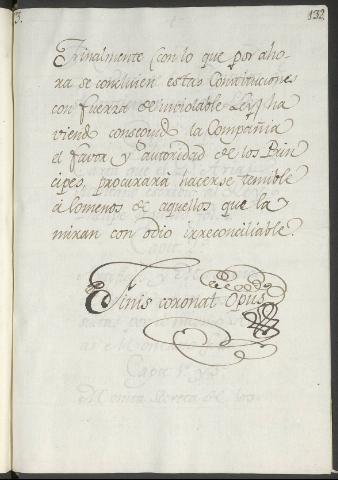 3.
132.
Finalmente (con lo que por aho-
ra se concluien estas Constituciones
con fuerza de inviolable Ley) ha
viendo conseguido la Compañia
el favor y autoridad de los Prin
cipes, procurará hacerse temible
á lomenos de aquellos que la
miran con odio irreconciliable.
Finis coronat Opus